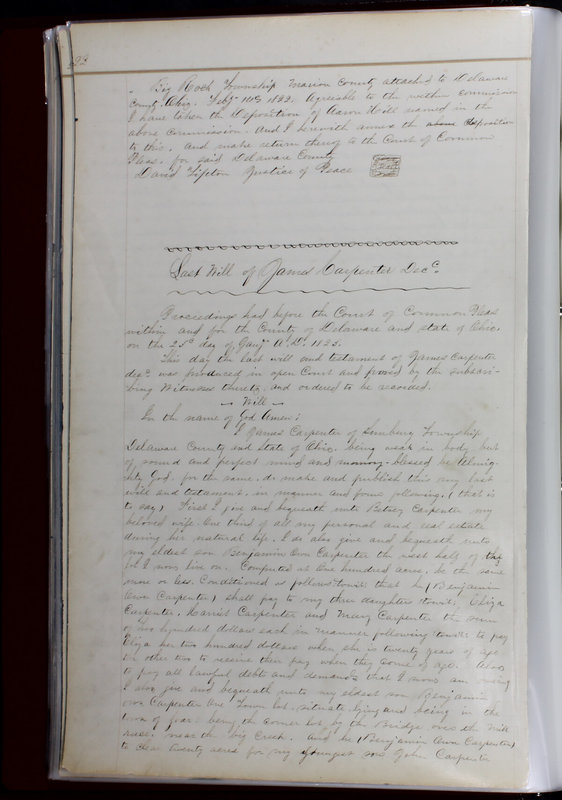 Big Rock Township Marion County attached to Delaware
County. Ohio. Feby 10th 1822. Agreeable to the within commission
I have taken the Deposition of Aaron Hill named in the
above Commission. And I herewith annex the above Deposition
to this, and make return thereof to the Court of Common
Pleas, for said Delaware County
David Tipton Justice of Peace
Last Will of James Carpenter Decd.
Proceedings had before the Court of Common Pleas
within and for the County of Delaware and state of Ohio.
on the 25th day of Jany A.D. 1823.
This day the last will and testament of James Carpenter
decd. was produced in open Court and proved by the subscri-
bing Witnesses thereto, and ordered to be recorded.
Will
In the name of God Amen:
I James Carpenter of Sunbury Township
Delaware County and State of Ohio, being weak in body but
of sound and perfect mind and memory, blessed be Almig-
hty God, for the same, do make and publish this my last
will and testament, in manner and form following. (that is
to say) First I give and bequeath unto Betsey Carpenter my
beloved wife. One third of all my personal and real estate
during her natural life. I do also give and bequeath unto
my eldest son Benjamin Own Carpenter the west half of the
lot I now live on. Computed at One hundred acres, be the same
more or less. Conditioned as follows towit: that he (Benjamin
Own Carpenter) shall pay to my three daughters towit; Eliza
Carpenter. Harriet Carpenter and Mary Carpenter the sum
of two hundred dollars each in manner following towit: to pay
Eliza her two hundred dollars when she is twenty years of age
the other two to receive their pay when they come of age. Also
to pay all lawful debts and demands that I now am owing
I also give and bequeath unto my eldest son Benjamin
own Carpenter One Town lot. situate lying and being in the
town of being the corner lot by the Bridge over the Mill
race, near the big Creek. And he (Benjamin Own Carpenter)
to clear twenty acres for my youngest son John Carpenter